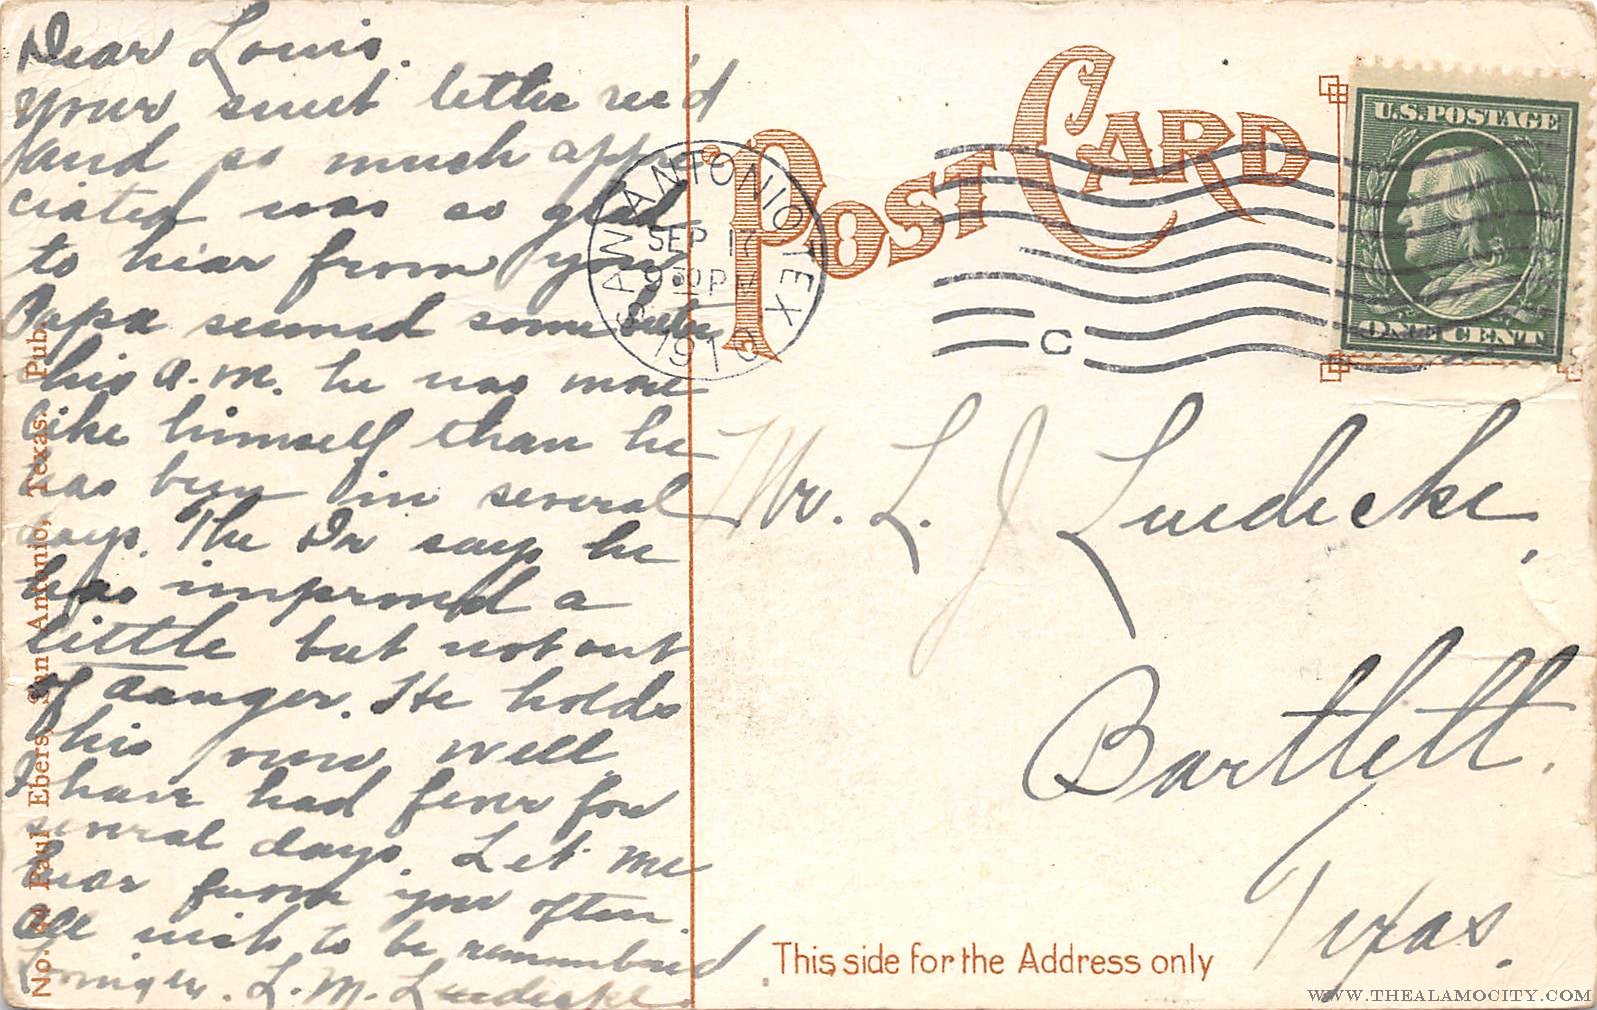 Dear Louis.
Your sweet letter rec'd
and so much appre
ciated was so glad
to hear from you
Papa seemed some better
this a.m. he was more
like himself than he
has been in several
days. The Dr says he
has improved a
little but not out
of danger. He holds
his own well.
I have had fever for
several days. Let me
hear from you often.
All wish to be remembered
L. M. Luedecke.
No. Paul Ebers, San Antonio, Texas. Pub.
POST CARD
SAN ANTONIO TEX
SEP 17
9 30 PM
191
C
U.S. POSTAGE
ONE CENT
Mr. L. J Luedecke,
Bartlett,
Texas.
This side for the Address only
WWW.THEALAMOCITY.COM